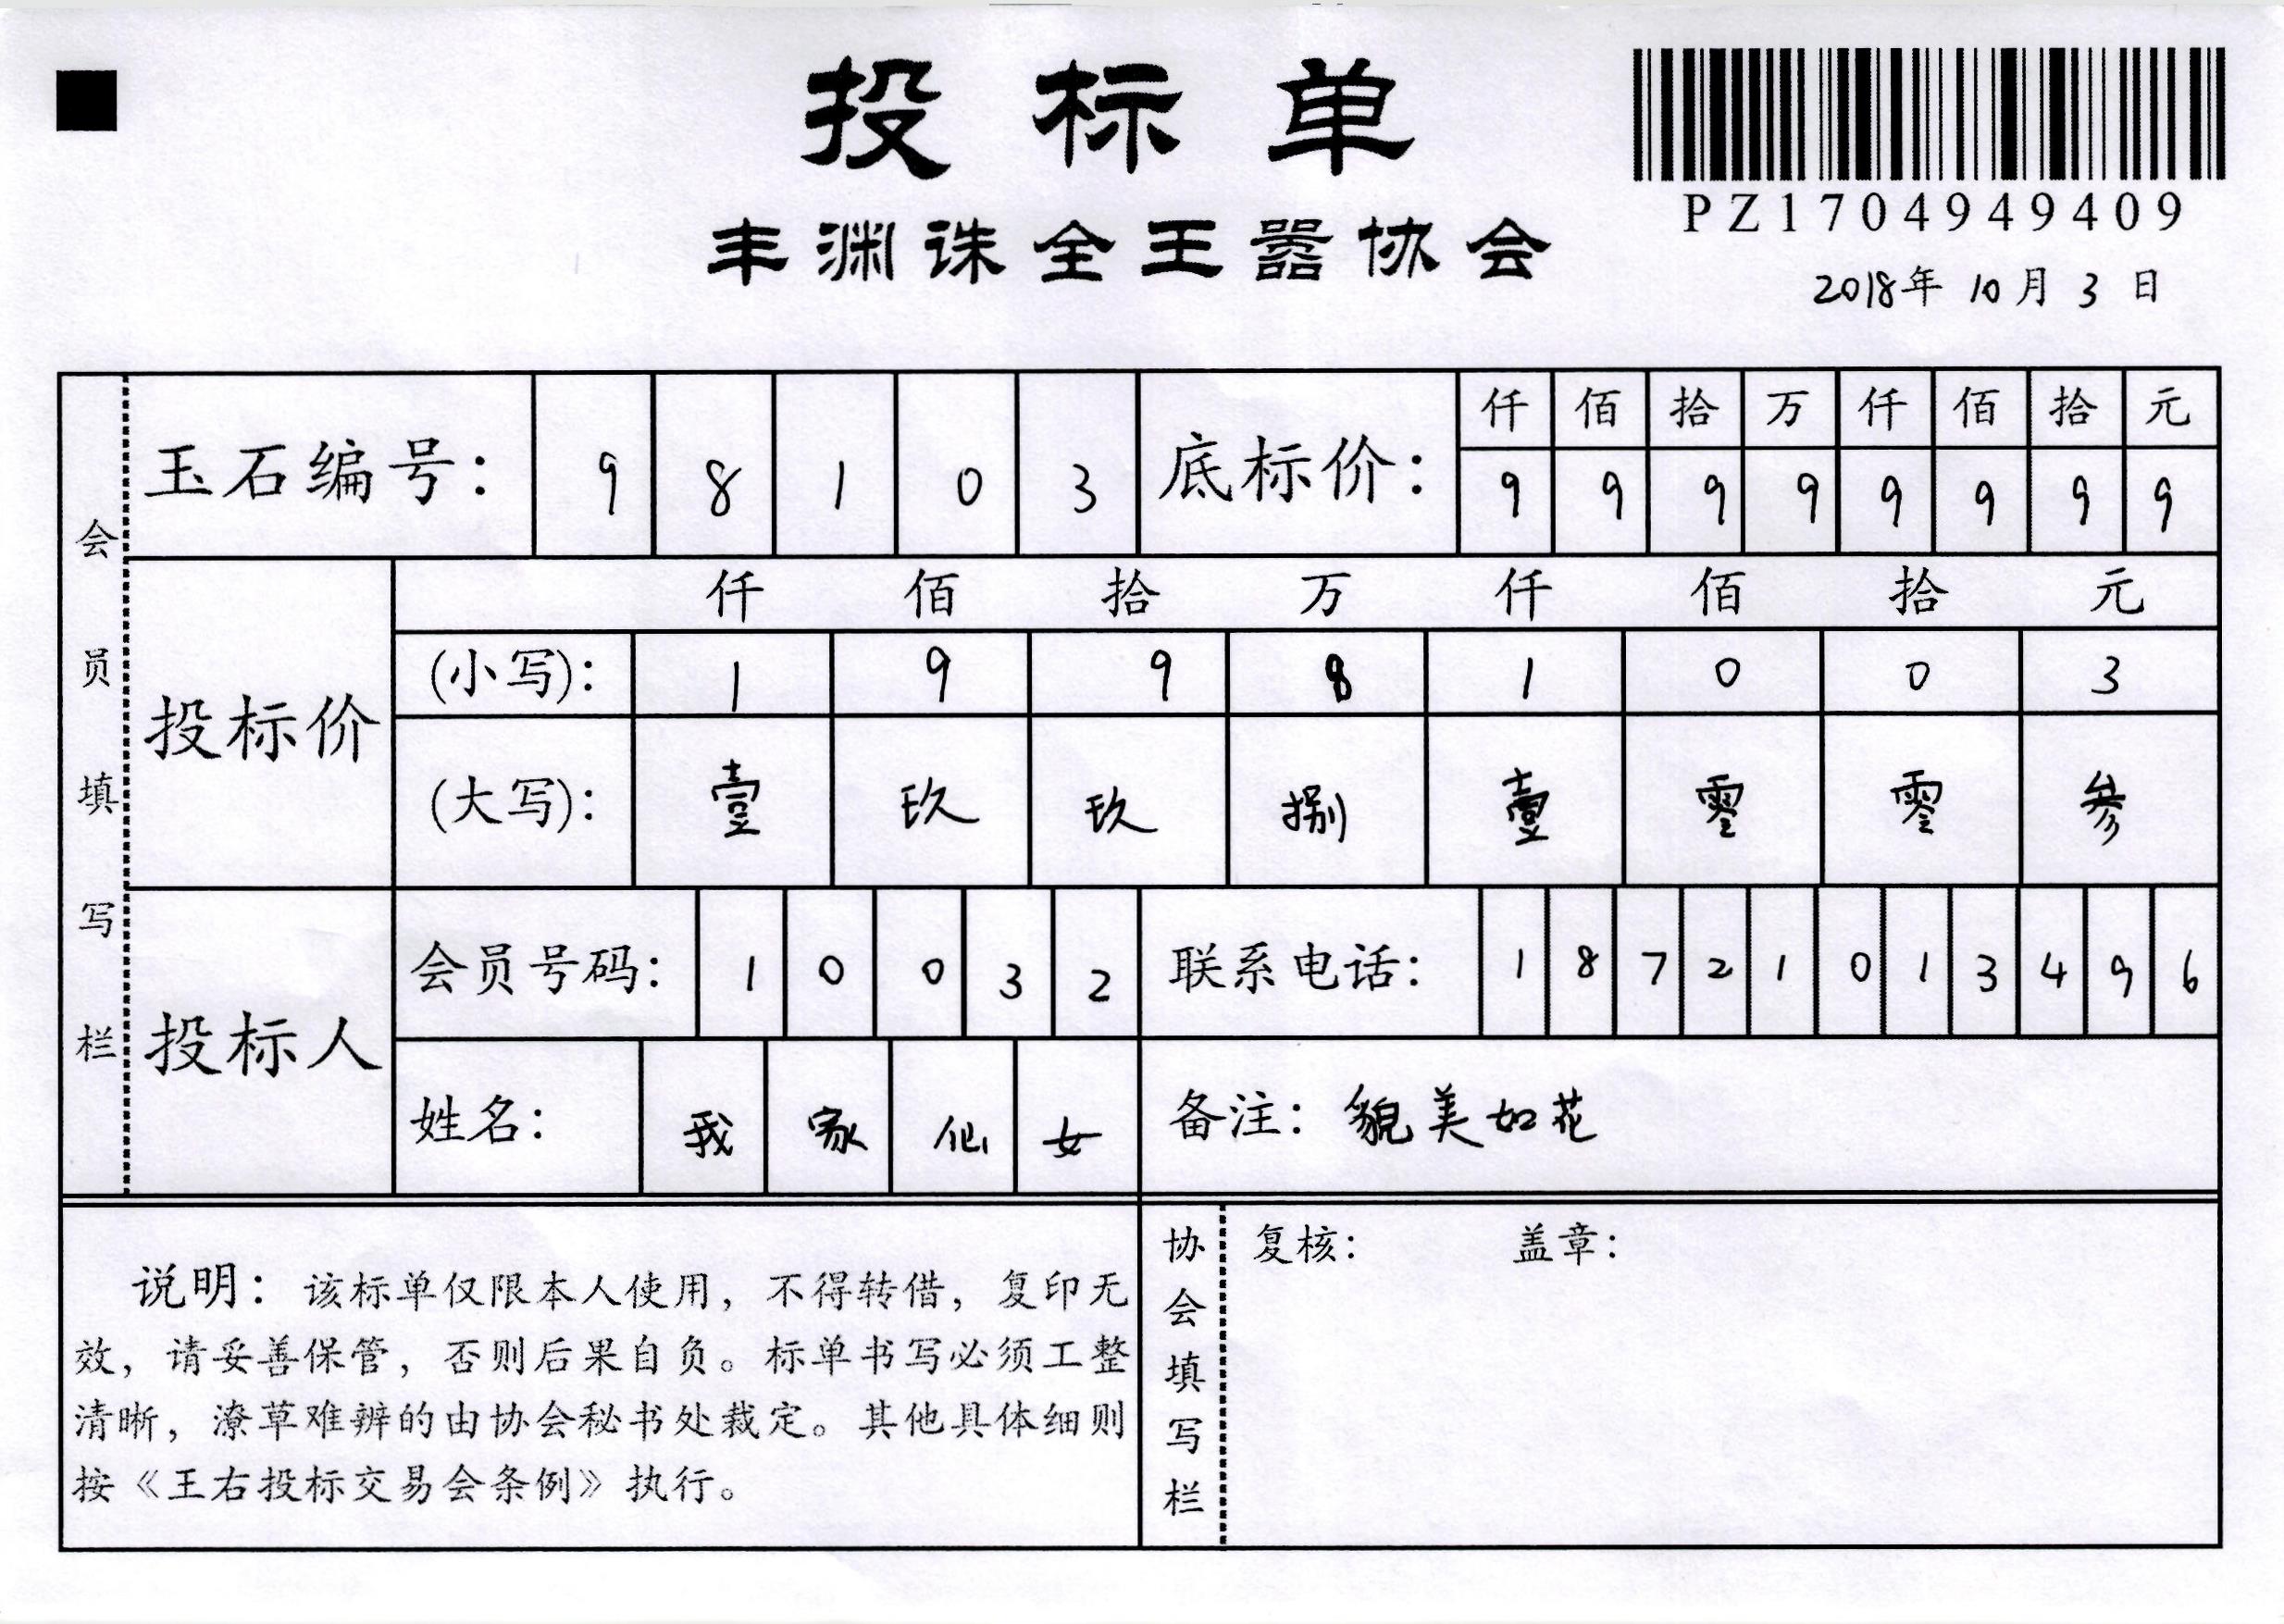 投标单
PZ1704949409
丰渊诛全王嚣协会
2018年 10月 3 日
会员填写栏
玉石编号: 9 8 1 0 3
底标价:
仟 佰 拾 万 仟 佰 拾 元
9 9 9 9 9 9 9 9
投标价
仟 佰 拾 万 仟 佰 拾 元
(小写): 1 9 9 8 1 0 0 3
(大写): 壹 玖 玖 捌 壹 零 零 参
投标人
会员号码: 1 0 0 3 2
联系电话: 1 8 7 2 1 0 1 3 4 9 6
姓名: 我 家 仙 女
备注: 貌美如花
说明: 该标单仅限本人使用, 不得转借, 复印无
效, 请妥善保管, 否则后果自负。标单书写必须工整
清晰, 潦草难辨的由协会秘书处裁定。其他具体细则
按《王右投标交易会条例》执行。
协会填写栏
复核: 盖章: